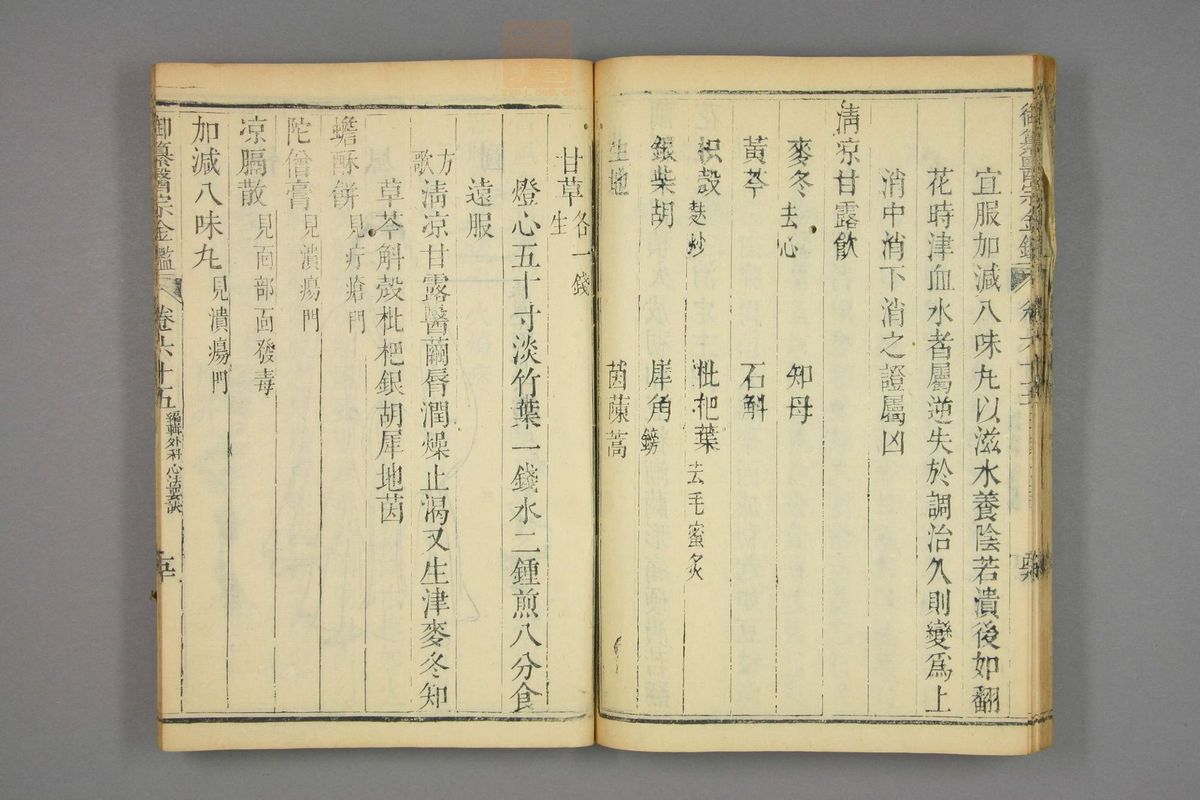 宜服加減八味丸以滋水養陰若潰後如翻
花時津血水者屬逆失於調治久則變為上
消中消下消之證屬凶
清凉甘露飲
麥冬去心 知母
黃芩 石斛
枳殼麩炒 枇杷葉去毛蜜炙
銀柴胡 犀角鎊
生地 茵蔯蒿
甘草生各一錢
燈心五十寸淡竹葉一錢水二鍾煎八分食
遠服
方歌清凉甘露醫繭唇潤燥止渴又生津麥冬知
草芩斛殼枇杷銀胡犀地茵
蟾酥餅見疔瘡門
陀僧膏見潰瘍門
凉膈散見面部面發毒
加減八味丸見潰瘍門
御纂醫宗金鑑 卷六十五 編輯外科心法要訣 五十